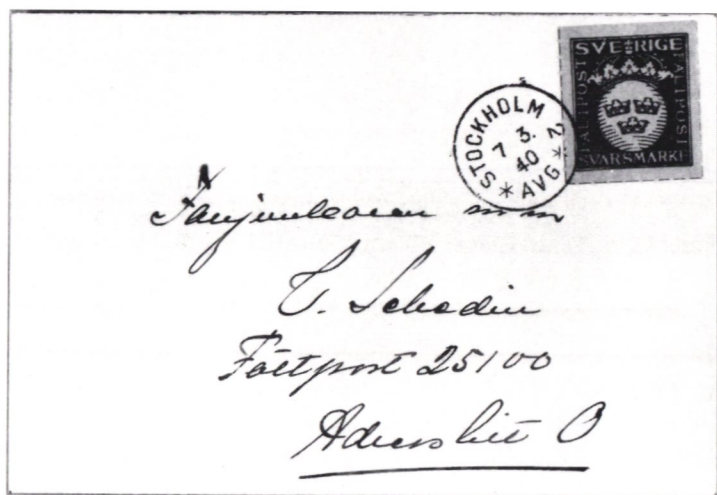 SVERIGE
FÄLTPOST
FÄLTPOST
SVARSMÄRKE
STOCKHOLM 2
7 3.
40
* AVG *
T. Schedin
Fältpost 25100
Adress Litt O